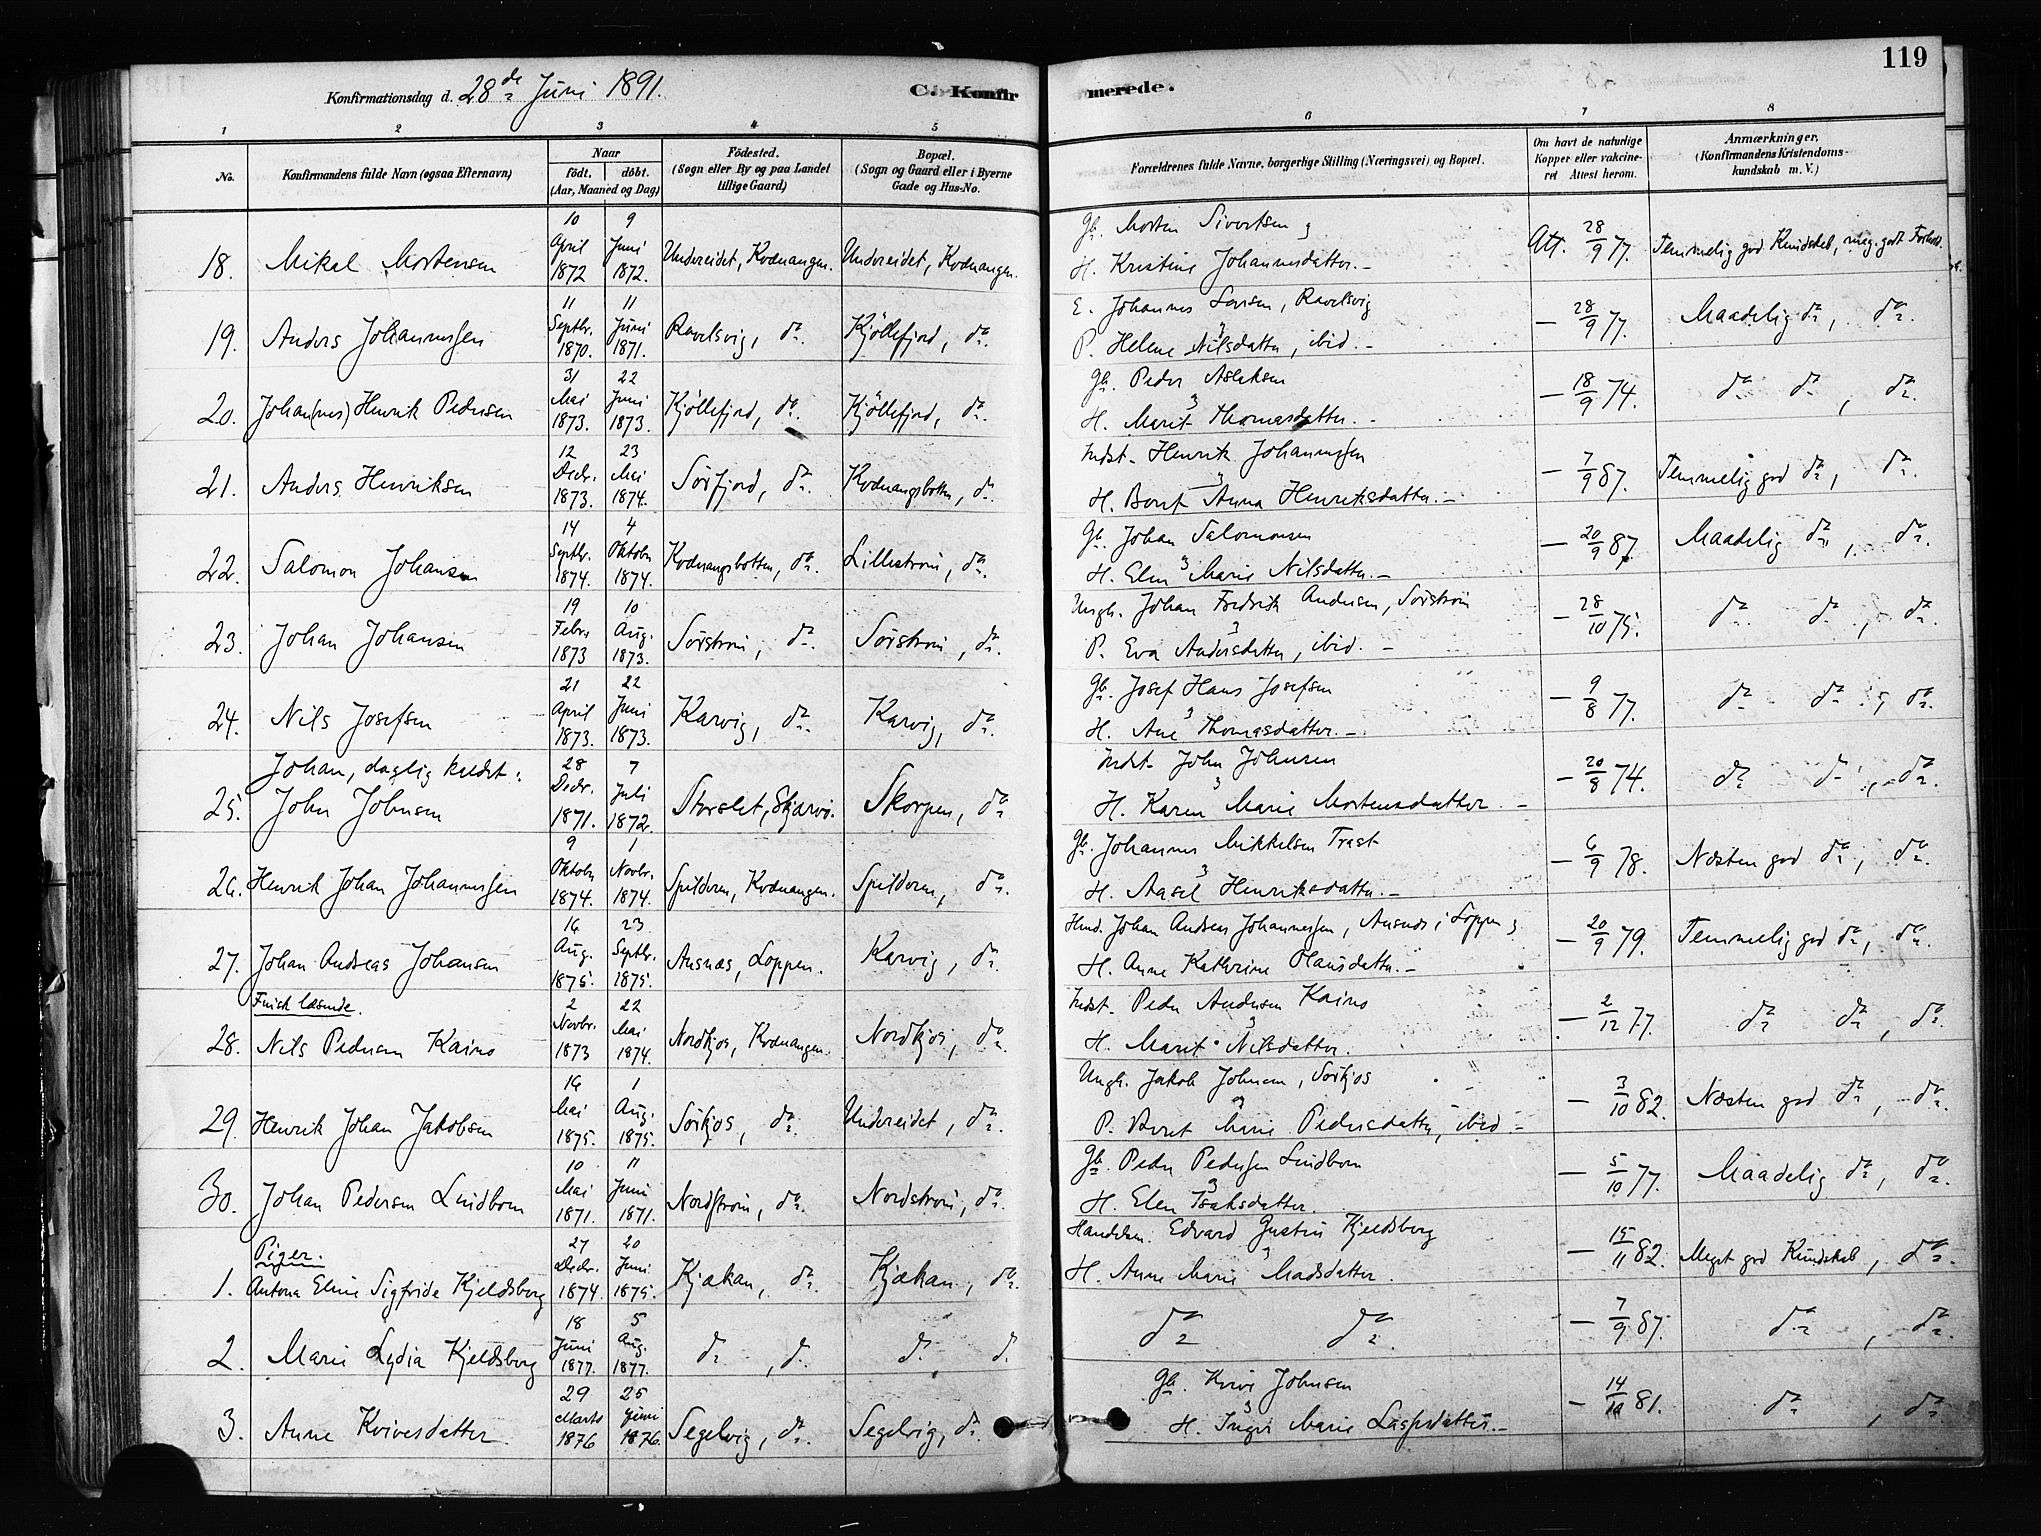 119
Konfirmationsdag d. 28de Juni 1891.
C. Konfirmerede.
1 2 3 4 5 6 7 8
No.
Konfirmandens fulde Navn (ogsaa Efternavn)
Naar
födt. döbt.
(Aar, Maaned og Dag)
Födested.
(Sogn eller By og paa Landet
tillige Gaard)
Bopæl.
(Sogn og Gaard eller i Byerne
Gade og Hus-No.
Forældrenes fulde Navne, borgerlige Stilling (Næringsvei) og Bopæl.
Om havt de naturlige
Kopper eller vakcine-
ret Attest herom.
Anmærkninger.
(Konfirmandens Kristendoms-
kundskab m.V.)
18. Mikal Mortensen 10 April 1872 9 Juni 1872. Undereidet, Kvænangen. Undereidet, Kvænangen. Gb. Morten Sivertsen
H. Kristine Johannesdatter. Att. 28/9 77. Temmelig god Kundskab, meg. godt Forhold.
19. Anders Johannessen 11 Septbr. 1870. 11 Juni 1871. Ravelsvig, do. Kjöllefjord, do. E. Johannes Larsen, Ravelsvig
P. Helene Nilsdatter, ibid. 28/9 77. Maadelig do, do.
20. Johan(nes) Henrik Pedersen 31 Mai 1873. 22 Juni 1873. Kjöllefjord, do. Kjöllefjord, do. Gb. Peder Aslaksen
H. Marit Thomasdatter. 18/9 74. do do, do.
21. Anders Henriksen 12 Decbr. 1873. 23 Mai 1874. Sörfjord, do. Kvænangsbotten, do. Indst. Henrik Johannessen
H. Berit Anna Henriksdatter. 7/9 87. Temmelig god do, do.
22. Salomon Johansen 14 Septbr. 1874. 4 Oktober 1874. Kvænangsbotten, do. Lillestrøm, do. Gb. Johan Salomonsen
H. Elen Marie Nilsdatter. 20/9 87. Maadelig do, do.
23. Johan Johansen 19 Febr. 1873 10 Aug. 1873. Sørstrøm, do. Sørstrøm, do. Ungk. Johan Fredrik Andersen, Sørstrøm
P. Eva Andersdatter, ibid. 28/10 75. do do, do.
24. Nils Josefsen 21 April 1873. 22 Juni 1873. Karvig, do. Karvig, do. Gb. Josef Hans Josefsen
H. Ane Thomasdatter. 9/8 77. do do, do.
Johan, daglig kaldet:
25. John Johnsen 28 Decbr. 1871. 7 Juli 1872. Storslet, Skjærvø. Skorpen, do. Indst. John Johnsen
H. Karen Marie Mortensdatter. 20/8 74. do do, do.
26. Henrik Johan Johannessen 9 Oktober 1874. 1 Novbr. 1874. Spildern, Kvænangen. Spildern, do. Gb. Johannes Mikkelsen Trast
H. Aasel Henriksdatter. 6/9 78. Næsten god do, do.
27. Johan Andreas Johansen 16 Aug. 1875. 23 Septbr. 1875. Ausnæs, Loppen. Karvig, do. Johan Andreas Johannessen, Ausnæs i Loppen
H. Anne Kathrine Olausdatter. 20/9 79. Temmelig god do, do.
Finsk læsende.
28. Nils Pedersen Kaino 2 Novbr. 1873 22 Mai 1874. Nordkjos, Kvænangen. Nordkjos, do. Indst. Peder Andersen Kaino
H. Marit Nilsdatter. 2/12 77. do do, do.
29. Henrik Johan Jakobsen 16 Mai 1875. 1 Aug. 1875. Sørkjos, do. Undereidet, do. Ungk. Jakob Johnsen, Sørkjos
P. Beret Marie Pedersdatter, ibid. 3/10 82. Næsten god do, do.
30. Johan Pedersen Lindbom 10 Mai 1871. 11 Juni 1871. Nordstrøm, do. Nordstrøm, do. Gb. Peder Pedersen Lindbom
H. Elen Isaksdatter. 5/10 77. Maadelig do, do.
Piger.
1. Antona Eline Sigfride Kjeldsberg 27 Decbr. 1874. 20 Juni 1875. Kjækan, do. Kjækan, do. Handelsm. Edvard Gustav Kjeldsberg
H. Anne Marie Madsdatter. 15/11 82. Meget god Kundskab, do.
2. Marie Lydia Kjeldsberg 18 Juni 1877. 5 Aug. 1877. do, do. do do. do do. 7/9 87. do, do.
3. Anne Kvivesdatter 29 Marts 1876 25 Juni 1876. Segelvig, do. Segelvig, do. Gb. Kvive Johnsen
H. Inger Marie Lassesdatter. 14/10 81. do, do.